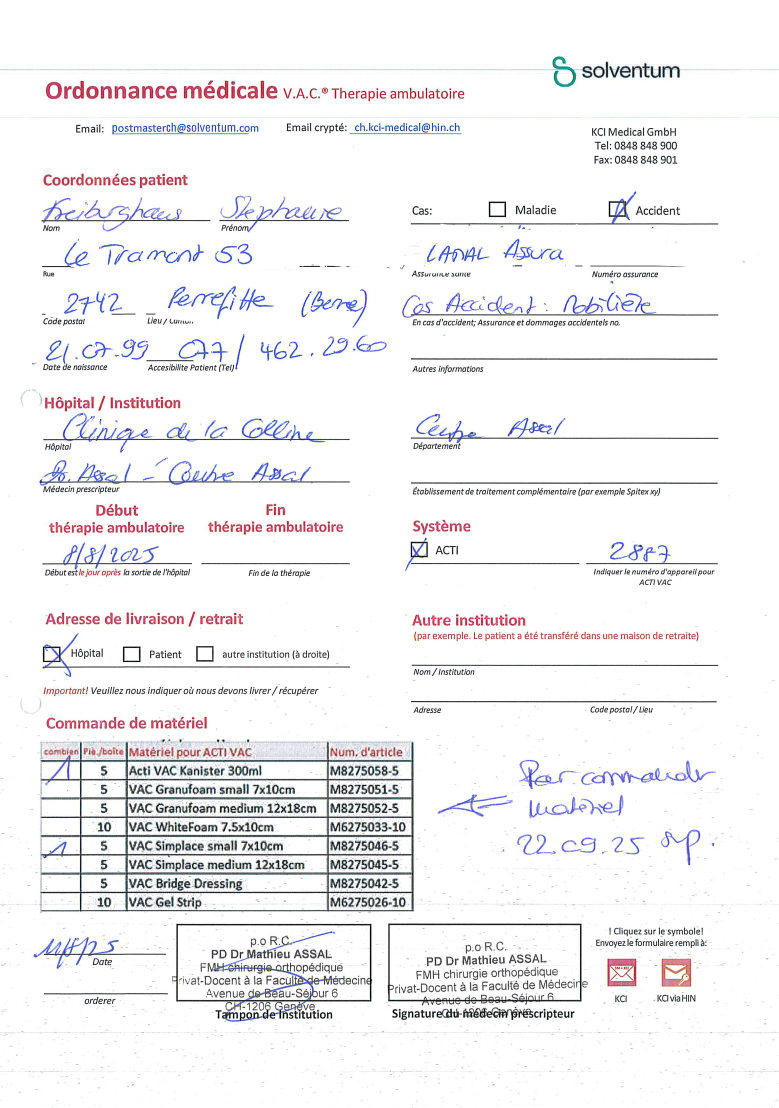 solventum
Ordonnance médicale V.A.C.® Therapie ambulatoire
Email: postmasterch@solventum.com Email crypté: ch.kci-medical@hin.ch
KCI Medical GmbH
Tel: 0848 848 900
Fax: 0848 848 901
Coordonnées patient
Freiburghaus Stephanie
Nom Prénom
Cas: Maladie Accident
Le Tramont 53
Rue
LAMAL Assura
Assurance santé Numéro assurance
2742 Perrefitte (Berne)
Code postal Lieu / Canton
Cas Accident : Mobilière
En cas d'accident; Assurance et dommages accidentels no.
21.07.99 077/ 462.29.60
Date de naissance Accesibilite Patient (Tel)
Autres informations
Hôpital / Institution
Clinique de la Colline
Hôpital
Centre Assal
Département
Dr. Assal - Centre Assal
Médecin prescripteur
Établissement de traitement complémentaire (par exemple Spitex xy)
Début
thérapie ambulatoire
Fin
thérapie ambulatoire
8/8/2025
Début est le jour après la sortie de l'hôpital
Fin de la thérapie
Système
ACTI 2887
Indiquer le numéro d'appareil pour
ACTI VAC
Adresse de livraison / retrait
Hôpital Patient autre institution (à droite)
Important! Veuillez nous indiquer où nous devons livrer / récupérer
Autre institution
(par exemple. Le patient a été transféré dans une maison de retraite)
Nom / Institution
Adresse Code postal / Lieu
Commande de matériel
combien Piè./boîte Matériel pour ACTI VAC Num. d'article
1 5 Acti VAC Kanister 300ml M8275058-5
5 VAC Granufoam small 7x10cm M8275051-5
5 VAC Granufoam medium 12x18cm M8275052-5
10 VAC WhiteFoam 7.5x10cm M6275033-10
1 5 VAC Simplace small 7x10cm M8275046-5
5 VAC Simplace medium 12x18cm M8275045-5
5 VAC Bridge Dressing M8275042-5
10 VAC Gel Strip M6275026-10
matériel
22.09.25
Date
orderer
p.o R.C.
PD Dr Mathieu ASSAL
FMH chirurgie orthopédique
Privat-Docent à la Faculté de Médecine
Avenue de Beau-Séjour 6
CH-1206 Genève
Tampon de Institution
p.o R.C.
PD Dr Mathieu ASSAL
FMH chirurgie orthopédique
Privat-Docent à la Faculté de Médecine
Avenue de Beau-Séjour 6
CH-1206 Genève
Signature du médecin prescripteur
! Cliquez sur le symbole!
Envoyez le formulaire rempli à:
KCI KCI via HIN